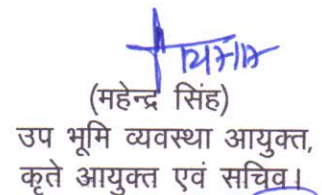 (महेन्द्र सिंह)
उप भूमि व्यवस्था आयुक्त,
कृते आयुक्त एवं सचिव।